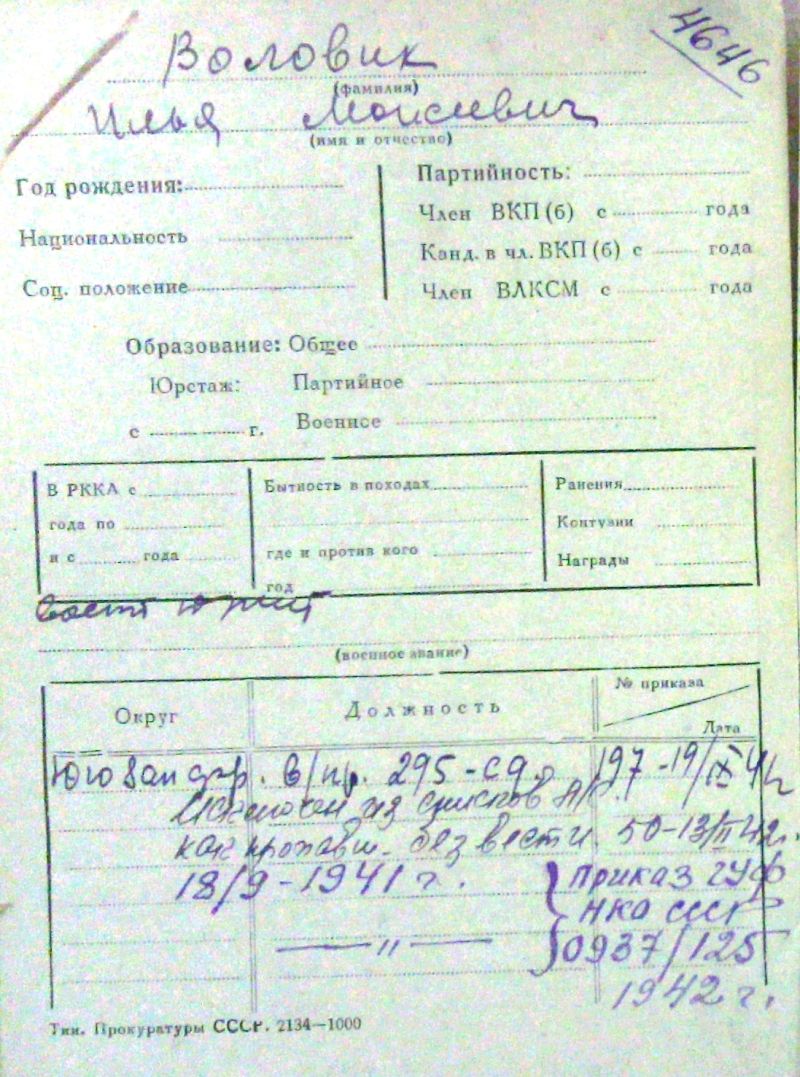 4646
Воловик
(фамилия)
Илья Моисеевич
(имя и отчество)
Год рождения:
Национальность
Соц. положение
Партийность:
Член ВКП (б) с года
Канд. в чл. ВКП (б) с года
Член ВЛКСМ с года
Образование: Общее
Юрстаж: Партийное
с г. Военное
В РККА с
года по
и с года
Бытность в походах
где и против кого
год
Ранения
Контузии
Награды
воент юрист
(военное звание)
Округ Должность № приказа
Дата
Юго Зап фр. в/пр. 295-сд. 197-19/IX 41г
Исключен из списков
как пропавш. без вести 50-13/II 42г.
18/9-1941 г. Приказ ГУФ
НКО СССР
—〃— 0937/125
1942 г.
Тип. Прокуратуры СССР. 2134—1000